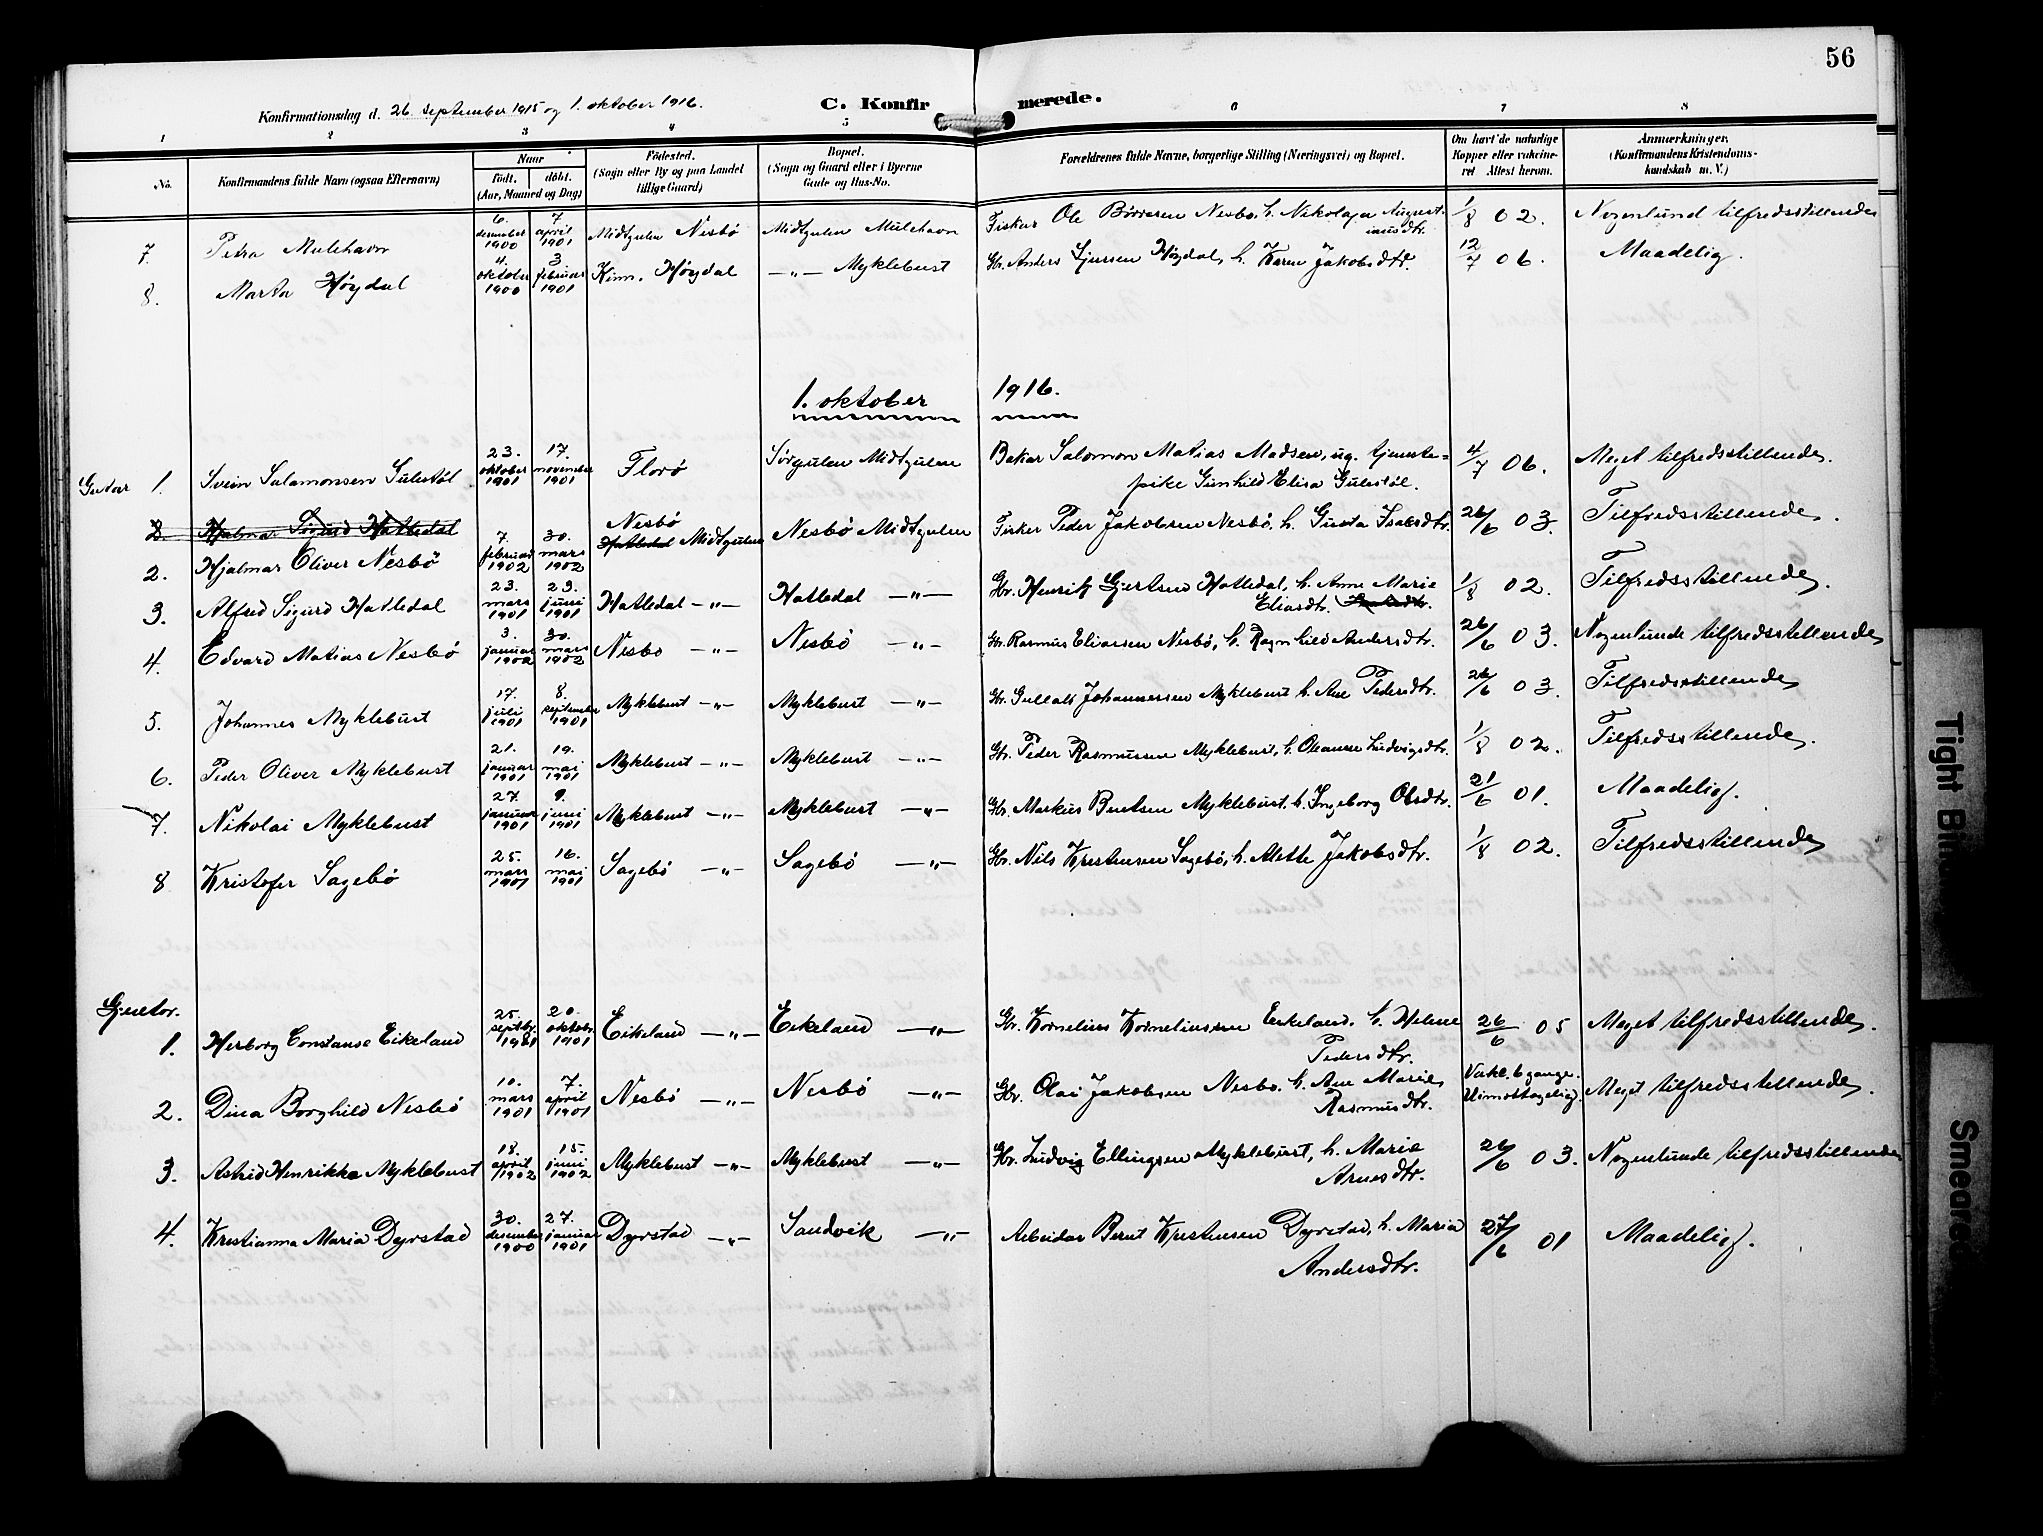 56
Konfirmationsdag d. 26. september 1915 og 1. oktober 1916.
C. Konfirmerede.
1 2 3 4 5 6 7 8
No. Konfirmandens fulde Navn (ogsaa Efternavn) Naar født. døbt. (Aar, Maaned og Dag) Fødested. (Sogn eller By og paa Landet tillige Gaard) Bopæl. (Sogn og Gaard eller i Byerne Gade og Hus-No. Forældrenes fulde Navne, borgerlige Stilling (Næringsvei) og Bopæl. Om havt de naturlige Kopper eller vakcineret Attest herom. Anmerkninger. (Konfirmandens Kristendomskundskab m. V.)
7. Petra Mulehavn 6. desember 1900 7 april 1901 Midtgulen Nesbö Midtgulen Mulehavn Fisker Ole Börresen Nesbö, h. Nikolaja Augustinusdtr. 1/8 02. Nogenlund tilfredsstillende
8. Marta Höydal 4. oktober 1900 3. februar 1901 Kinn, Höydal —„— Myklebust Gbr. Anders Sjursen Höydal, h. Karen Jakobsdtr. 12/7 06. Maadelig.
1. oktober 1916.
Gutar 1. Svein Salamonsen Gulestöl 23. oktober 1901 17. november 1901 Florö Sörgulen Midtgulen Bakar Salomon Matias Madsen, ug. tjeneste=
pike Gunhild Elisa Gulestöl. 4/7 06. Meget tilfredsstillende.
2 Hjalmar Sigurd Hatledal
2. Hjalmar Oliver Nesbö 7. februar 1902 30. mars 1902 Nesbö Hatledal Midtgulen Nesbö Midtgulen Fisker Peder Jakobsen Nesbö, h. Gusta Isaksdtr. 26/6 03. Tilfredsstillende.
3. Alfred Sigurd Hatledal 23. mars 1901 23. juni 1901 Hatledal —„— Hatledal —„— Gbr. Henrik Gjertsen Hatledal, h. Anne Marie
Eliasdtr. 1/8 02. Tilfredsstillende.
4. Edvard Matias Nesbö 3. januar 1902 30. mars 1902 Nesbö —„— Nesbö —„— Gbr. Rasmus Eliassen Nesbö, h. Ragnhild Andersdtr. 26/6 03. Nogenlunde tilfredsstillende
5. Johannes Myklebust 17. juli 1901 8. september 1901 Myklebust —„— Myklebust —„— Gbr. Johannessen Myklebust h. Ane Pedersdtr. 26/6 03 Tilfredsstillende
6. Peder Oliver Myklebust 21. januar 1901 19. mai 1901 Myklebust —„— Myklebust —„— Gbr. Peder Rasmussen Myklebust, h. Oleanna Ludvigsdtr. 1/8 02. Tilfredsstillende.
7. Nikolai Myklebust 27. januar 1901 9. juni 1901 Myklebust —„— Myklebust —„— Gbr. Markus Berntsen Myklebust. h. Ingeborg Olsdtr. 21/6 01. Maadelig.
8 Kristofer Sagebö 25. mars 1901 16. mai 1901 Sagebö —„— Sagebö —„— Gbr. Nils Kristensen Sagebö, h. Alette Jakobsdtr. 1/8 02. Tilfredsstillende
Gjentor.
1. Herborg Constanse Eikeland 25. septbr. 1901 20. oktobr. 1901 Eikeland —„— Eikeland —„— Gbr. Kornelius Korneliussen Eikeland. h. Helene
Pedersdtr. 26/6 05 Meget tilfredsstillende.
2. Dina Borghild Nesbö 10. mars 1901 7. april 1901 Nesbö —„— Nesbö —„— Gbr. Olai Jakobsen Nesbö. h. Ane Marie
Rasmusdtr. Vakc. 6 gange. Uimottagelig. Meget tilfredsstillende.
3. Astrid Henrikke Myklebust 18. april 1902 15. juni 1902 Myklebust —„— Myklebust —„— Gbr. Ludvig Ellingsen Myklebust, h. Marie
Arnesdtr. 26/6 03. Nogenlunde tilfredsstillende
4. Kristianna Maria Dyrstad 30. desember 1900 27. januar 1901 Dyrstad —„— Sandvik —„— Arbeidar Bernt Kristensen Dyrstad, h. Maria
Andersdtr. 27/6 01 Maadelig.
Tight Bin
Smeared